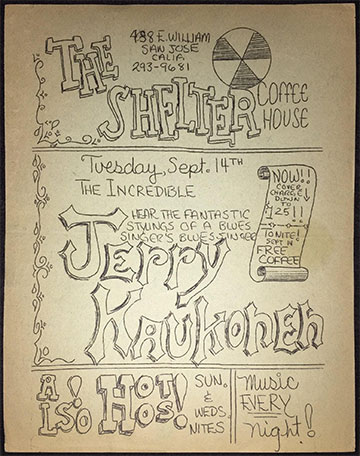 438 E. WILLIAM
SAN JOSE
CALIA.
293-9681
THE
SHELTER
COFFEE
HOUSE
Tuesday, Sept. 14TH
THE INCREDIBLE
HEAR THE FANTASTIC
STYLINGS OF A BLUES
SINGER'S BLUES SINGER
Jerry
Kaukoneh
NOW!!
COVER
CHARGE DOWN
TO
$1.25!!
TONITE!
SEPT 14
FREE
COFFEE
ALSO!
HOOT
HOOS!
SUN.
&
WEDS.
NITES
Music
EVERY
Night!